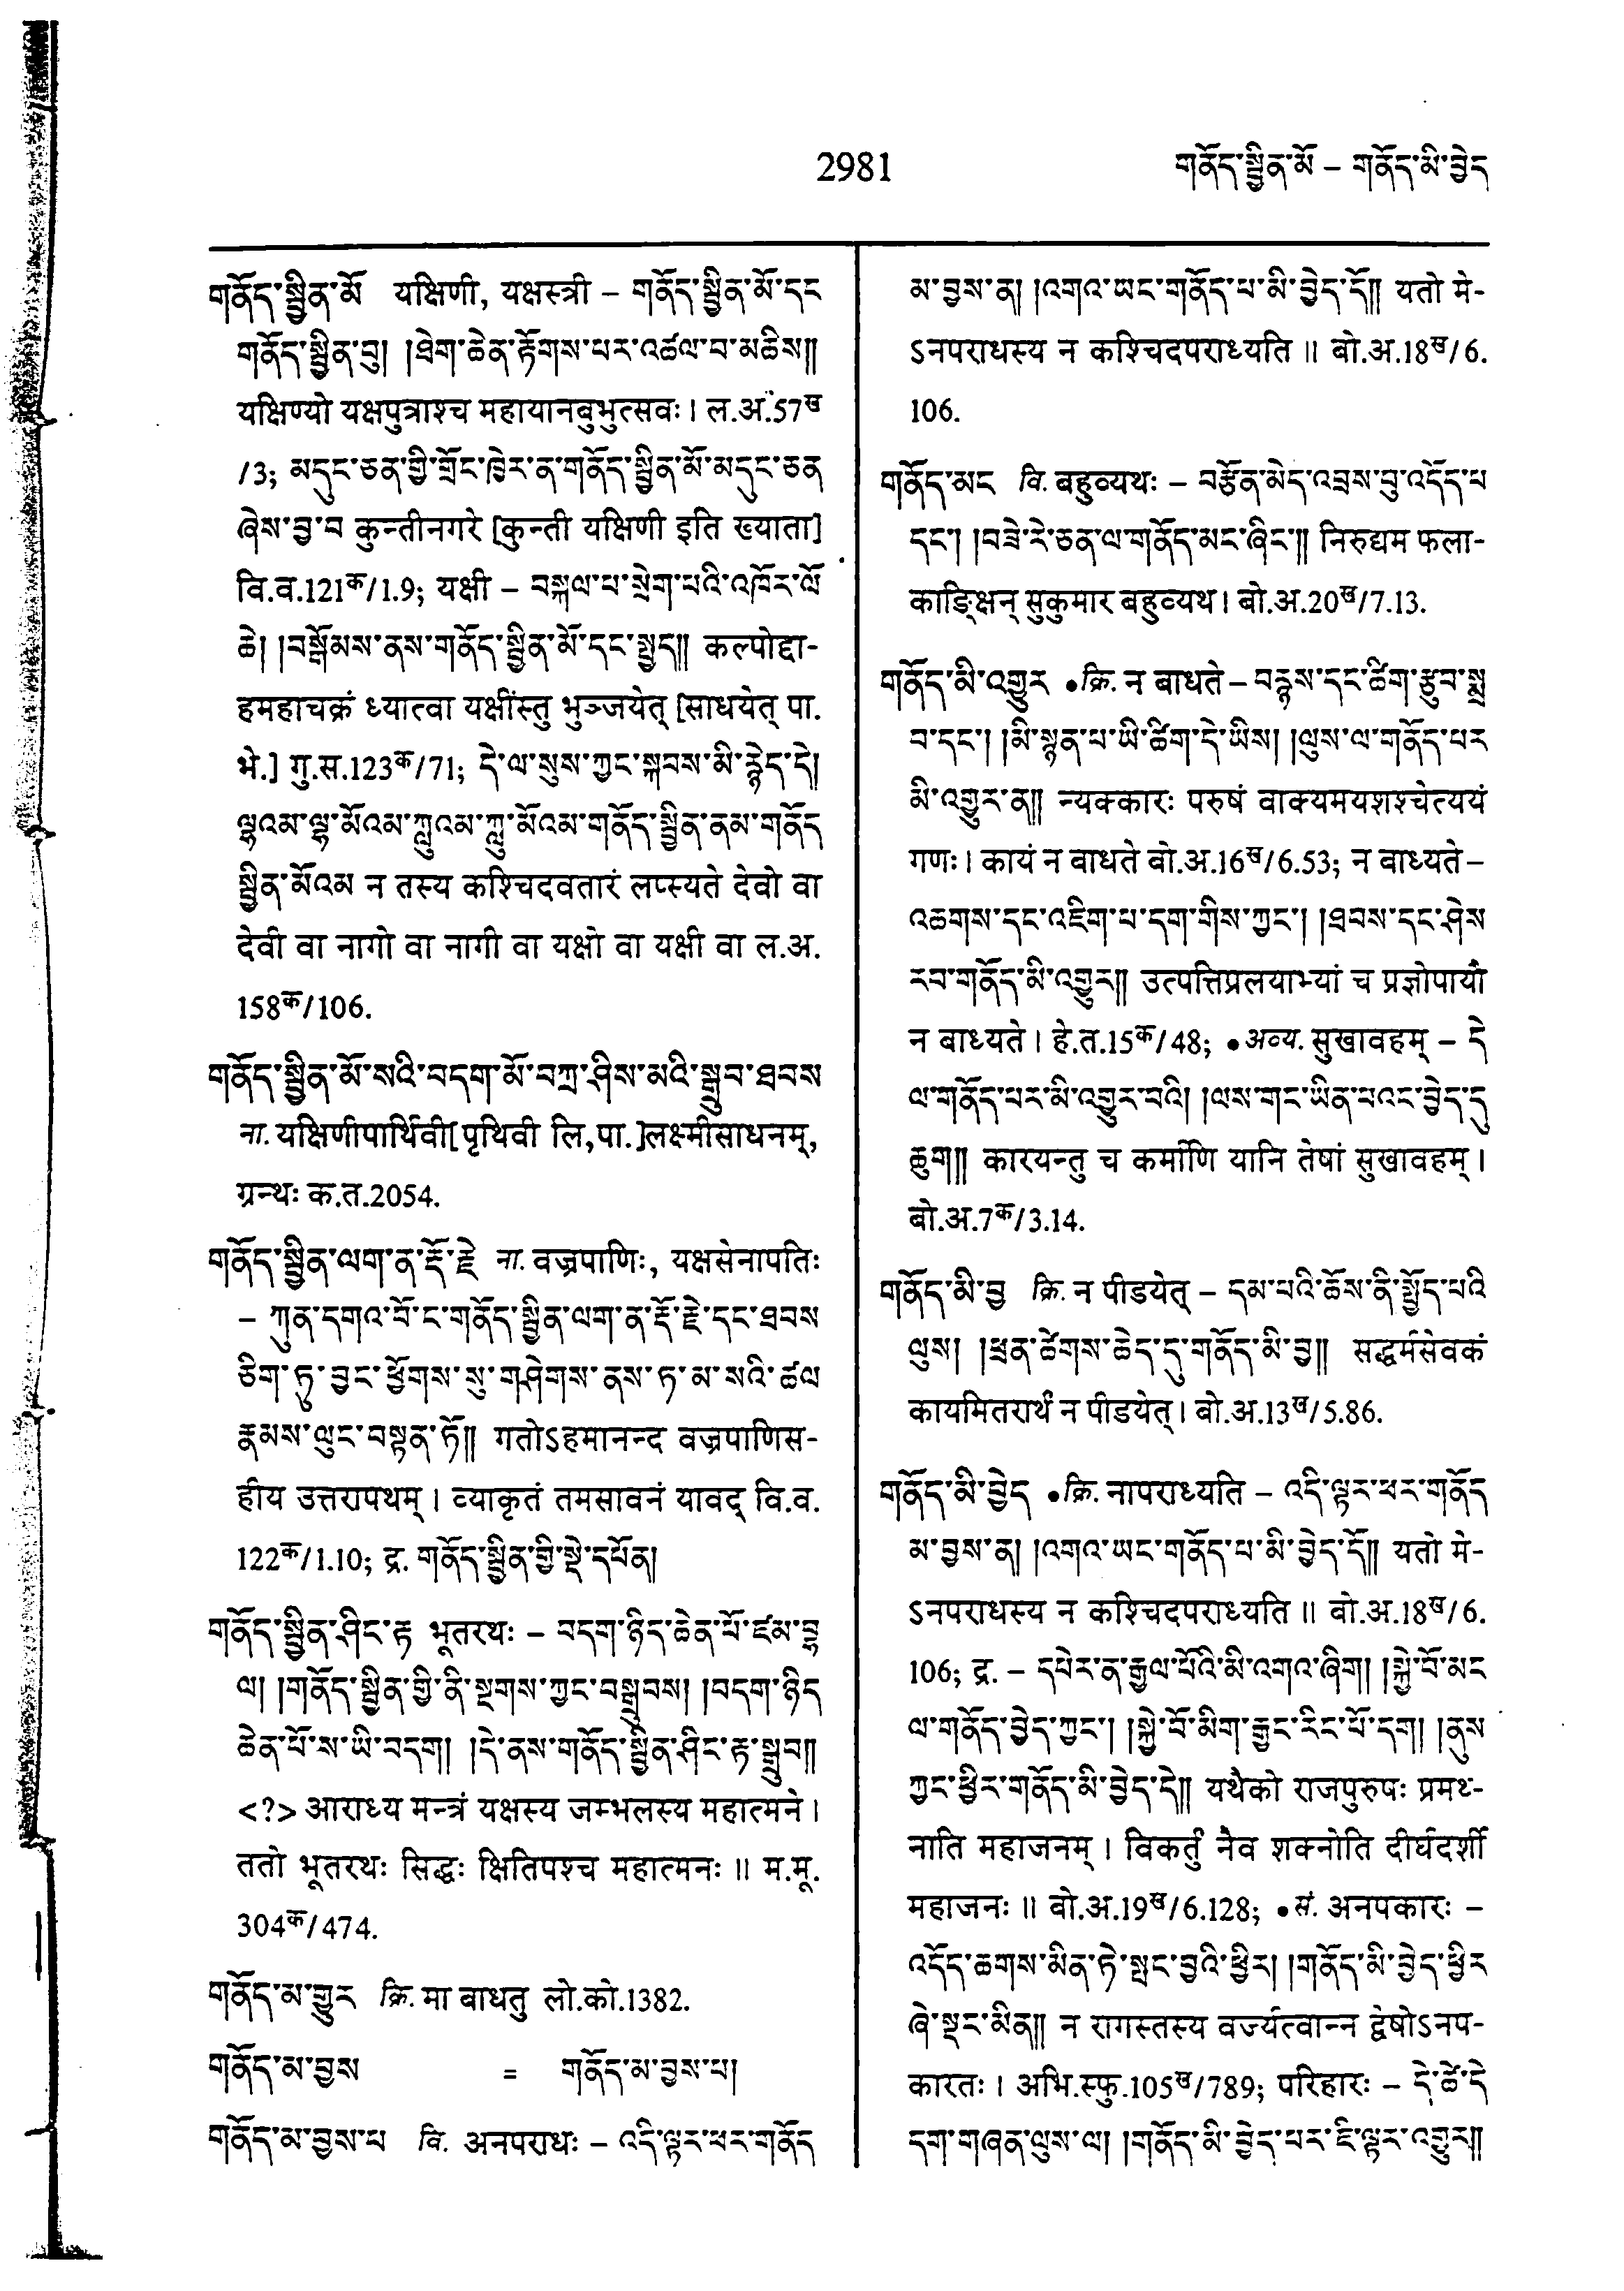 2981
གནོད་སྦྱིན་མོ – གནོད་མི་བྱེད
གནོད་སྦྱིན་མོ यक्षिणी, यक्षस्त्री – གནོད་སྦྱིན་མོ་དང
གནོད་སྦྱིན་བུ། །ཐེག་ཆེན་རྟོགས་པར་འཚལ་བ་མཆིས༎
यक्षिण्यो यक्षपुत्राश्च महायानबुभुत्सवः। ल.अ.57ख
/3; མདུང་ཅན་གྱི་གྲོང་ཁྱེར་ན་གནོད་སྦྱིན་མོ་མདུང་ཅན
ཞེས་བྱ་བ कुन्तीनगरे [कुन्ती यक्षिणी इति ख्याता]
वि.व.121क/1.9; यक्षी – བསྐལ་པ་སྲེག་པའི་འཁོར་ལོ
ཆེ། །བསྒོམས་ནས་གནོད་སྦྱིན་མོ་དང་སྤྱད༎ कल्पोद्दा-
हमहाचक्रं ध्यात्वा यक्षींस्तु भुञ्जयेत् [साधयेत् पा.
भे.] गु.स.123क/71; དེ་ལ་སུས་ཀྱང་སྐབས་མི་རྙེད་དེ།
ལྷའམ་ལྷ་མོའམ་ཀླུའམ་ཀླུ་མོའམ་གནོད་སྦྱིན་ནམ་གནོད
སྦྱིན་མོའམ न तस्य कश्चिदवतारं लप्स्यते देवो वा
देवी वा नागो वा नागी वा यक्षो वा यक्षी वा ल.अ.
158क/106.
གནོད་སྦྱིན་མོ་སའི་བདག་མོ་བཀྲ་ཤིས་མའི་སྒྲུབ་ཐབས
ना. यक्षिणीपार्थिवी[पृथिवी लि,पा.]लक्ष्मीसाधनम्,
ग्रन्थः क.त.2054.
གནོད་སྦྱིན་ལག་ན་རྡོ་རྗེ ना. वज्रपाणिः, यक्षसेनापतिः
– ཀུན་དགའ་བོ་ང་གནོད་སྦྱིན་ལག་ན་རྡོ་རྗེ་དང་ཐབས
ཅིག་ཏུ་བྱང་ཕྱོགས་སུ་གཤེགས་ནས་ཏ་མ་སའི་ཚལ
རྣམས་ལུང་བསྟན་ཏོ༎ गतोऽहमानन्द वज्रपाणिस-
हीय उत्तरापथम्। व्याकृतं तमसावनं यावद् वि.व.
122क/1.10; द्र. གནོད་སྦྱིན་གྱི་སྡེ་དཔོན།
གནོད་སྦྱིན་ཤིང་རྟ भूतरथः – བདག་ཉིད་ཆེན་པོ་ཛམ་བྷ
ལ། །གནོད་སྦྱིན་གྱི་ནི་སྔགས་ཀྱང་བསྒྲུབས། །བདག་ཉིད
ཆེན་པོ་ས་ཡི་བདག། །དེ་ནས་གནོད་སྦྱིན་ཤིང་རྟ་སྒྲུབ༎
<?> आराध्य मन्त्रं यक्षस्य जम्भलस्य महात्मने।
ततो भूतरथः सिद्धः क्षितिपश्च महात्मनः॥ म.मू.
304क/474.
གནོད་མ་གྱུར क्रि. मा बाधतु लो.को.1382.
གནོད་མ་བྱས = གནོད་མ་བྱས་པ།
གནོད་མ་བྱས་པ वि. अनपराधः – འདི་ལྟར་ཕར་གནོད
མ་བྱས་ན། །འགའ་ཡང་གནོད་པ་མི་བྱེད་དོ༎ यतो मे-
ऽनपराधस्य न कश्चिदपराध्यति॥ बो.अ.18ख/6.
106.
གནོད་མང वि. बहुव्यथः – བརྩོན་མེད་འབྲས་བུ་འདོད་པ
དང་། །བཟེ་རེ་ཅན་ལ་གནོད་མང་ཞིང་༎ निरुद्यम फला-
काङ्क्षिन् सुकुमार बहुव्यथ। बो.अ.20ख/7.13.
གནོད་མི་འགྱུར •क्रि. न बाधते – བརྙས་དང་ཚིག་རྩུབ་སྨྲ
བ་དང་། །མི་སྙན་པ་ཡི་ཚིག་དེ་ཡིས། །ལུས་ལ་གནོད་པར
མི་འགྱུར་ན༎ न्यक्कारः परुषं वाक्यमयशश्चेत्ययं
गणः। कायं न बाधते बो.अ.16ख/6.53; न बाध्यते –
འཆགས་དང་འཇིག་པ་དག་གིས་ཀྱང་། །ཐབས་དང་ཤེས
རབ་གནོད་མི་འགྱུར༎ उत्पत्तिप्रलयाभ्यां च प्रज्ञोपायौ
न बाध्यते। हे.त.15क/48; •अव्य. सुखावहम् – དེ
ལ་གནོད་པར་མི་འགྱུར་བའི། །ལས་གང་ཡིན་པའང་བྱེད་དུ
ཆུག༎ कारयन्तु च कर्माणि यानि तेषां सुखावहम्।
बो.अ.7क/3.14.
གནོད་མི་བྱ क्रि. न पीडयेत् – དམ་པའི་ཆོས་ནི་སྤྱོད་པའི
ལུས། །ཕྲན་ཚེགས་ཆེད་དུ་གནོད་མི་བྱ༎ सद्धर्मसेवकं
कायमितरार्थं न पीडयेत्। बो.अ.13ख/5.86.
གནོད་མི་བྱེད •क्रि. नापराध्यति – འདི་ལྟར་ཕར་གནོད
མ་བྱས་ན། །འགའ་ཡང་གནོད་པ་མི་བྱེད་དོ༎ यतो मे-
ऽनपराधस्य न कश्चिदपराध्यति॥ बो.अ.18ख/6.
106; द्र. – དཔེར་ན་རྒྱལ་པོའི་མི་འགའ་ཞིག། །སྐྱེ་བོ་མང
ལ་གནོད་བྱེད་ཀྱང་། །སྐྱེ་བོ་མིག་རྒྱང་རིང་པོ་དག། །ནུས
ཀྱང་ཕྱིར་གནོད་མི་བྱེད་དེ༎ यथैको राजपुरुषः प्रमथ्-
नाति महाजनम्। विकर्तुं नैव शक्नोति दीर्घदर्शी
महाजनः॥ बो.अ.19ख/6.128; •सं. अनपकारः –
འདོད་ཆགས་མིན་ཏེ་སྤང་བྱའི་ཕྱིར། །གནོད་མི་བྱེད་ཕྱིར
ཞེ་སྡང་མིན༎ न रागस्तस्य वर्ज्यत्वान्न द्वेषोऽनप-
कारतः। अभि.स्फु.105ख/789; परिहारः – དེ་ཚེ་དེ
དག་གཞན་ལུས་ལ། །གནོད་མི་བྱེད་པར་ཇི་ལྟར་འགྱུར༎